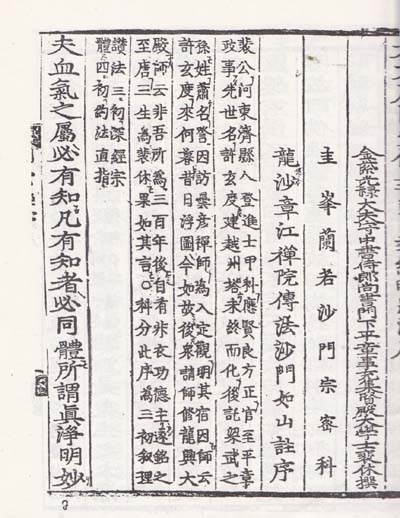 金紫光祿大夫守中書侍郎尚書門下平章事充集賢殿大學士裴休撰
圭峯蘭若沙門宗密科
龍沙章江禪院傳法沙門如山註序
裴公河東濟縣人登進士甲科應賢良方正官至平章
政事先世名許玄度建越州塔未終而化後託梁武之
孫姓蕭名詧因訪曇彦禪師爲入定觀明其宿因師云
許玄度來何暮昔日浮圖今如故後衆請師修龍興大
殿師云非吾所爲三百年後自有非衣功德主遂銘之
至唐三生爲裴休果如其言○科分此序爲三初叙理
讃法三初深經宗
體四初約法直指
夫血氣之屬必有知凡有知者必同體所謂眞淨明妙